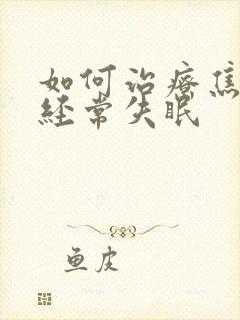 如何治療焦
經常失眠
鱼皮